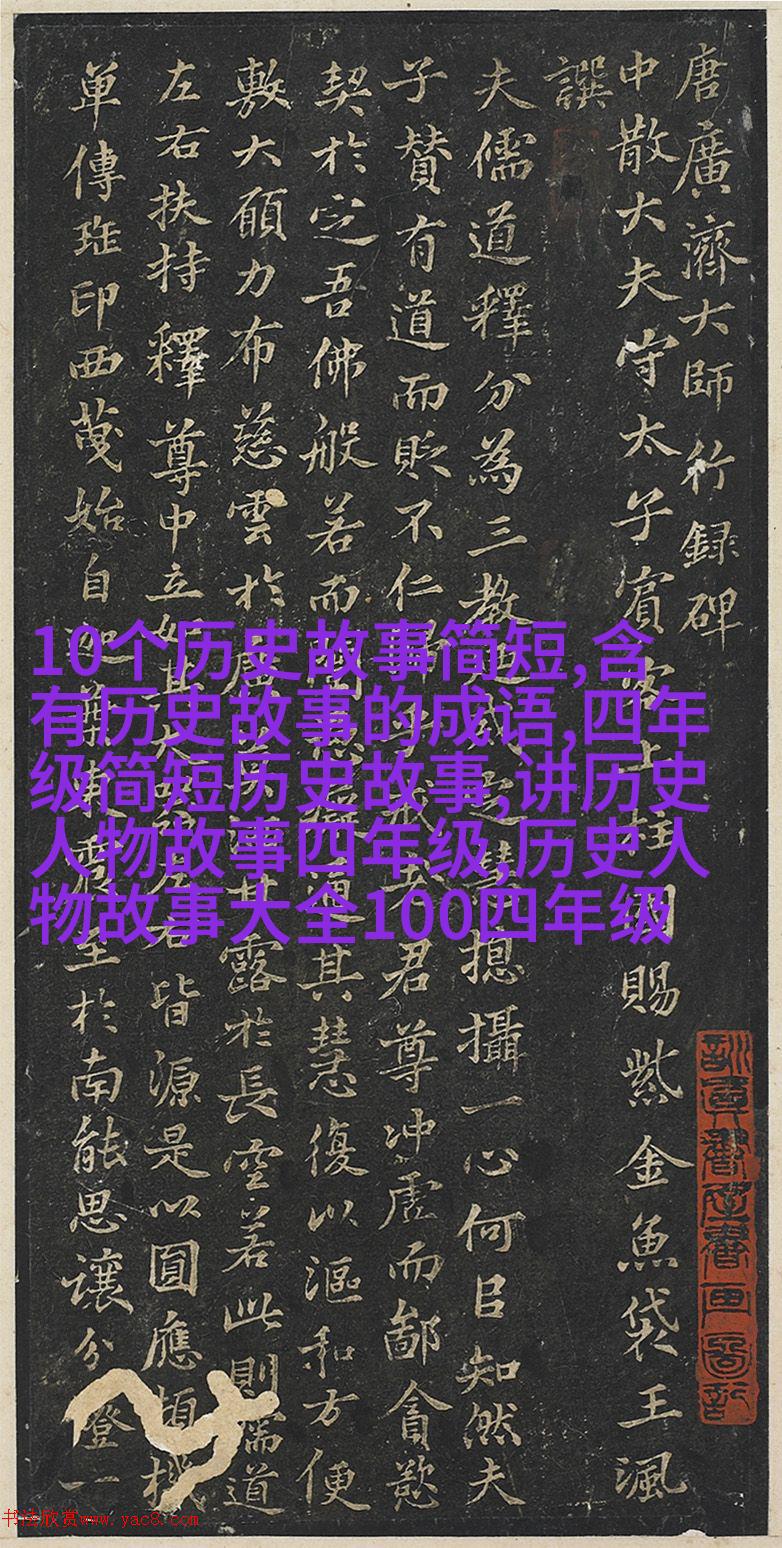 唐廣濟大師行録碑
中散大夫守太子賓客上柱國賜紫金魚袋王渢
譔
夫儒道釋分為三教揔攝一心何以知然夫
子贊有道而貶不仁君尊冲虛而鄙貪慾
契於定吾佛般若而其慧復以漚和方便
敷大願力布慈雲於露於長空若此則儒道
左右扶持釋尊中立如皆源是以圓應頓機
單傳印西始自至於南能思讓分燈一
10个历史故事简短,含
有历史故事的成语,四年
级简短历史故事,讲历史
人物故事四年级,历史人
物故事大全100四年级
书法欣赏www.yac8.com